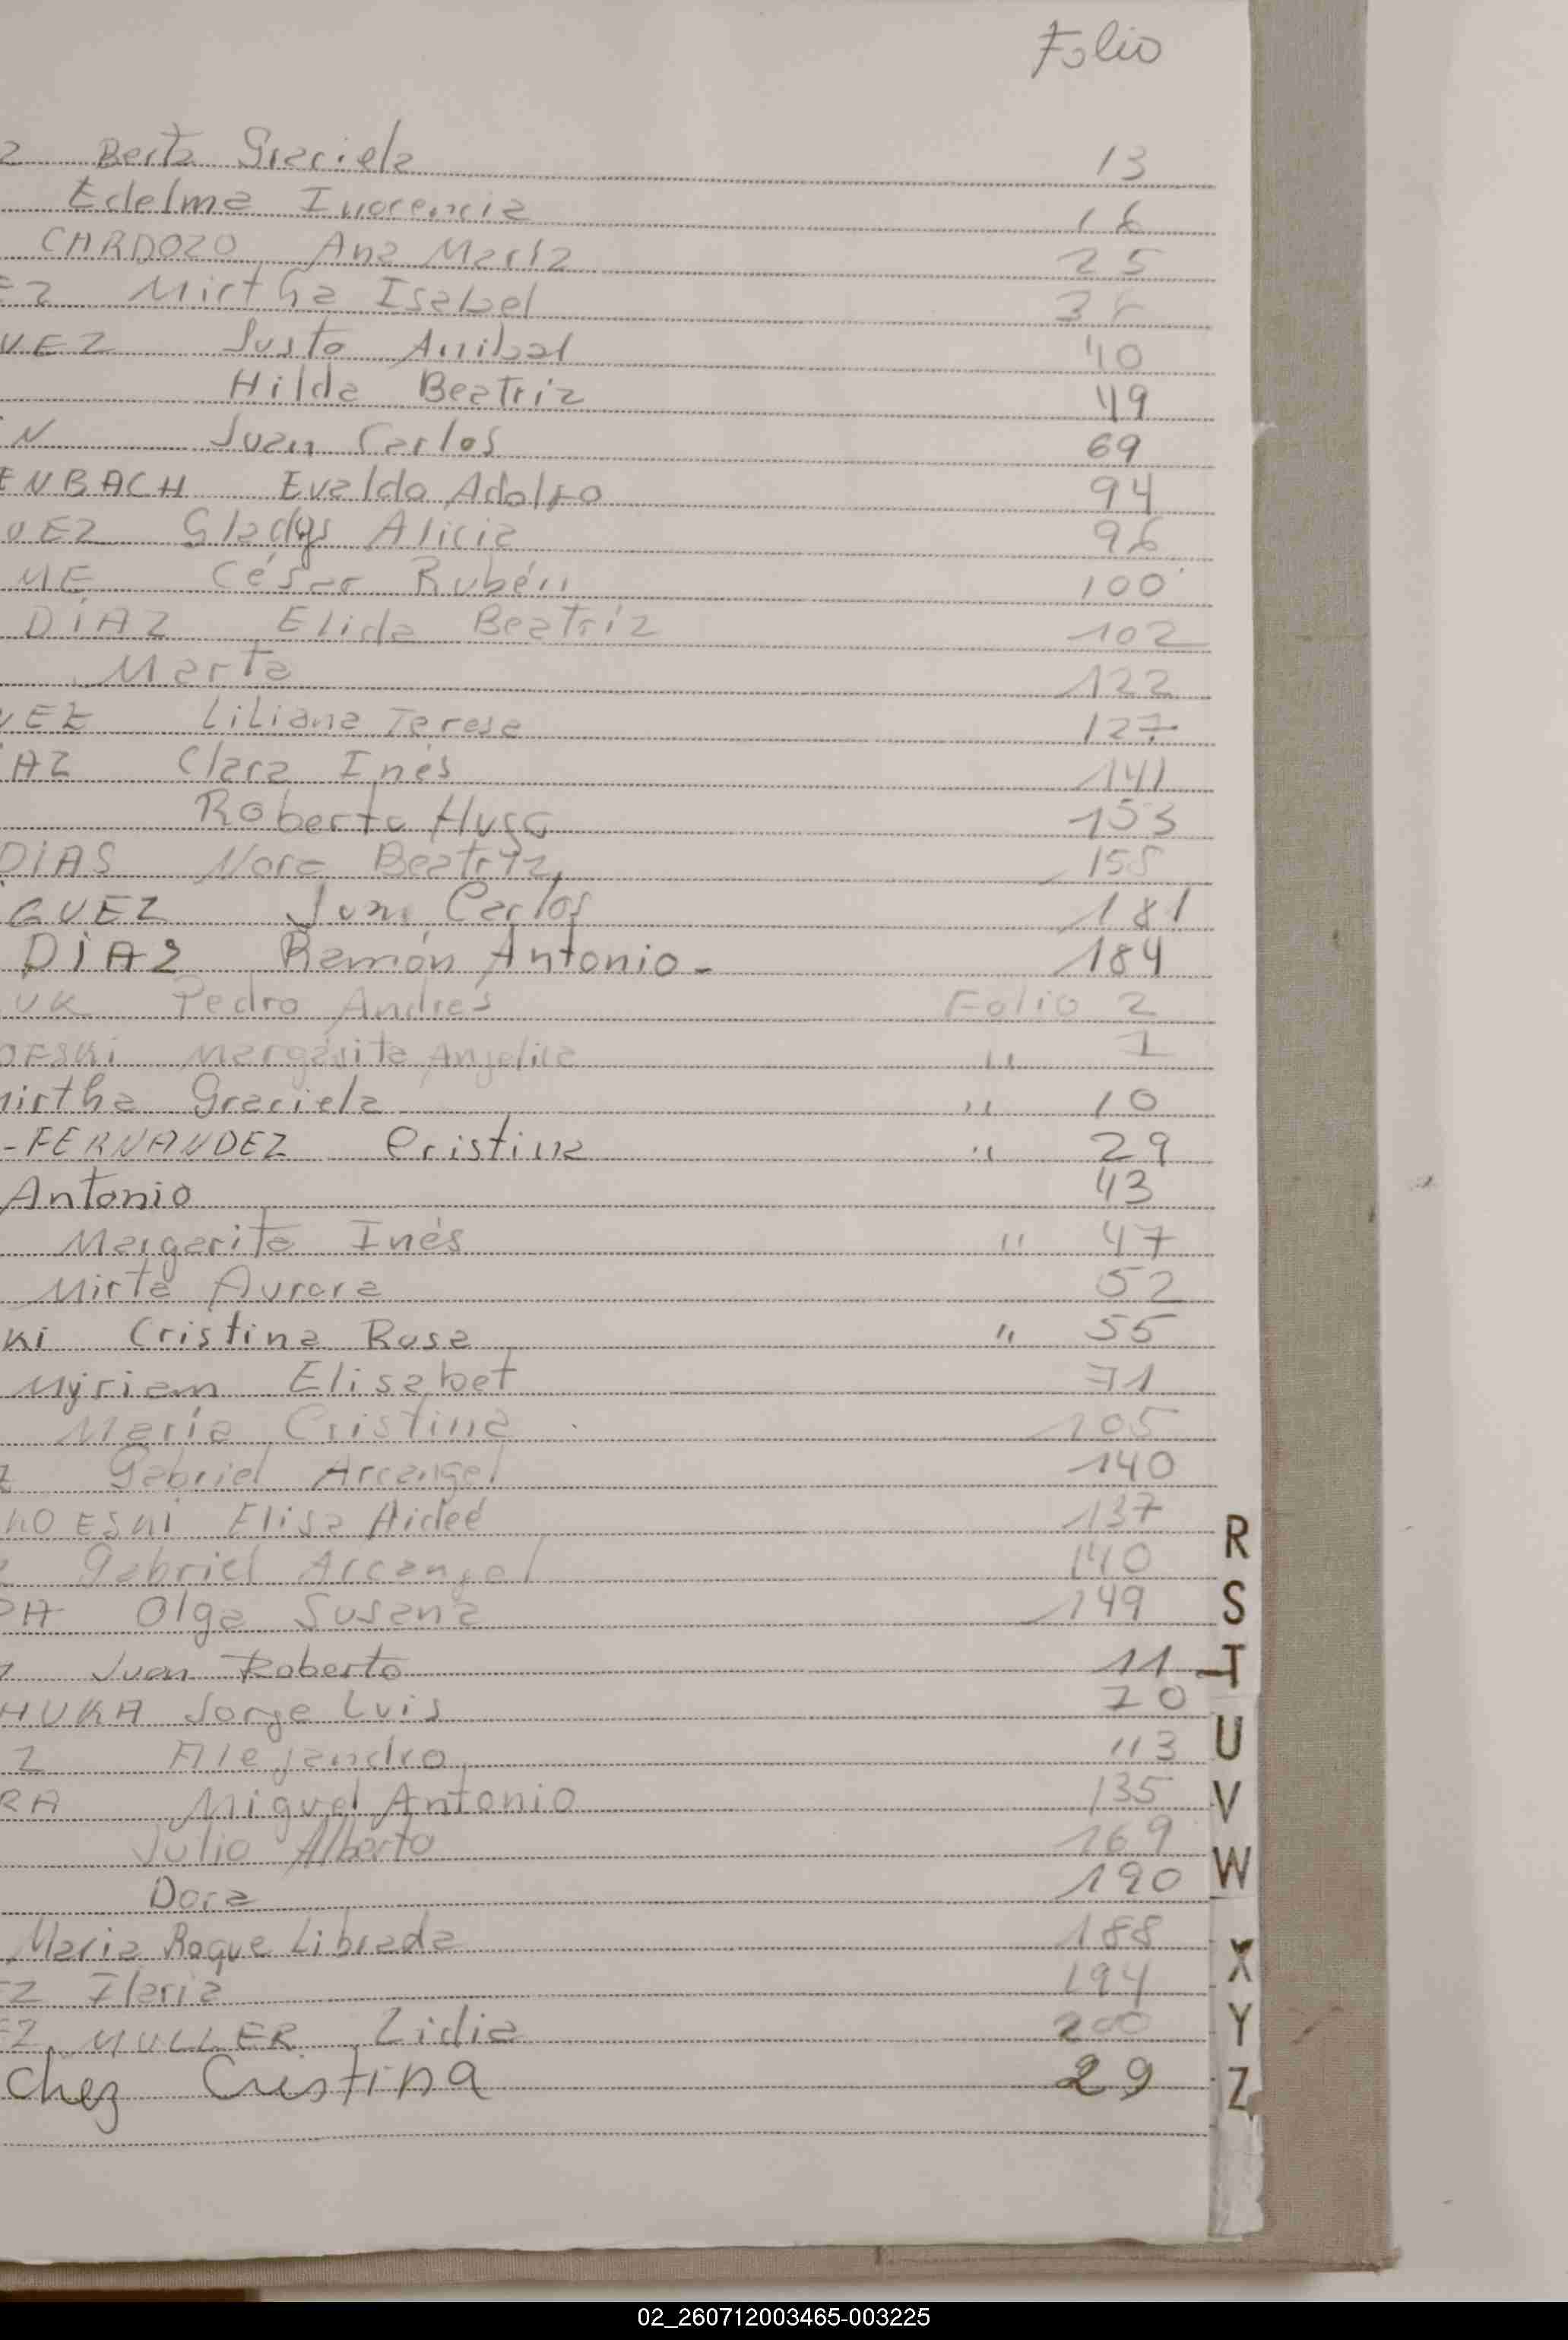 Folio
Berta Graciela 13
Edelma Inocencia 16
CARDOZO Ana María 25
EZ Mirtha Isabel
UEZ Justo Anibal 40
Hilda Beatriz 49
N Juan Carlos 69
ENBACH Evaldo Adolfo 94
UEZ Gladys Alicia 96
ME César Rubén 100
DÍAZ Elida Beatríz 102
Marta 122
Liliana Teresa 127
AZ Clara Inés 141
Roberto Hugo 153
DIAS Nora Beatriz 155
GUEZ Juan Carlos 181
DÍAZ Ramón Antonio- 184
UK Pedro Andrés Folio 2
Margarita Angelica " 1
irtha Graciela " 10
-FERNANDEZ Cristina " 29
Antonio 43
Margarita Inés " 47
Mirta Aurora 52
ki Cristina Rosa " 55
Myriam Elisabet 71
María Cristina 105
Z Gabriel Arcangel 140
Elisa Aideé 137
Gabriel Arcangel 140
Olga Susana 149
Juan Roberto 11
HUKA Jorge Luis 70
Z Alejandro 113
RA Miguel Antonio 135
Julio Alberto 169
Dora 190
Maria Roque Librada 188
EZ Ilaria 194
EZ MULLER Lidia 200
chez Cristina 29
R
S
T
U
V
W
X
Y
Z
02_260712003465-003225